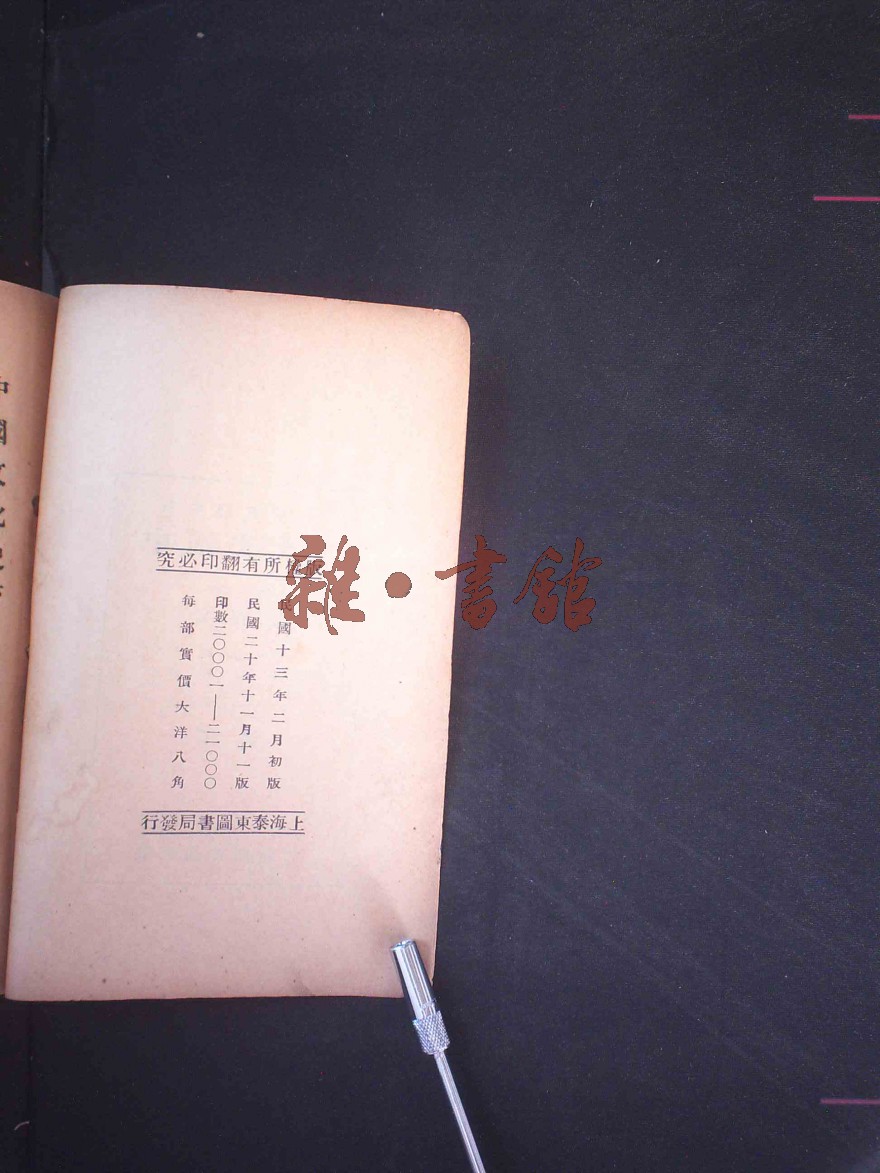 版權所有翻印必究
民國十三年二月初版
民國二十年十一月十一版
印數二〇〇〇一——二一〇〇〇
每部實價大洋八角
上海泰東圖書局發行
雜·書館